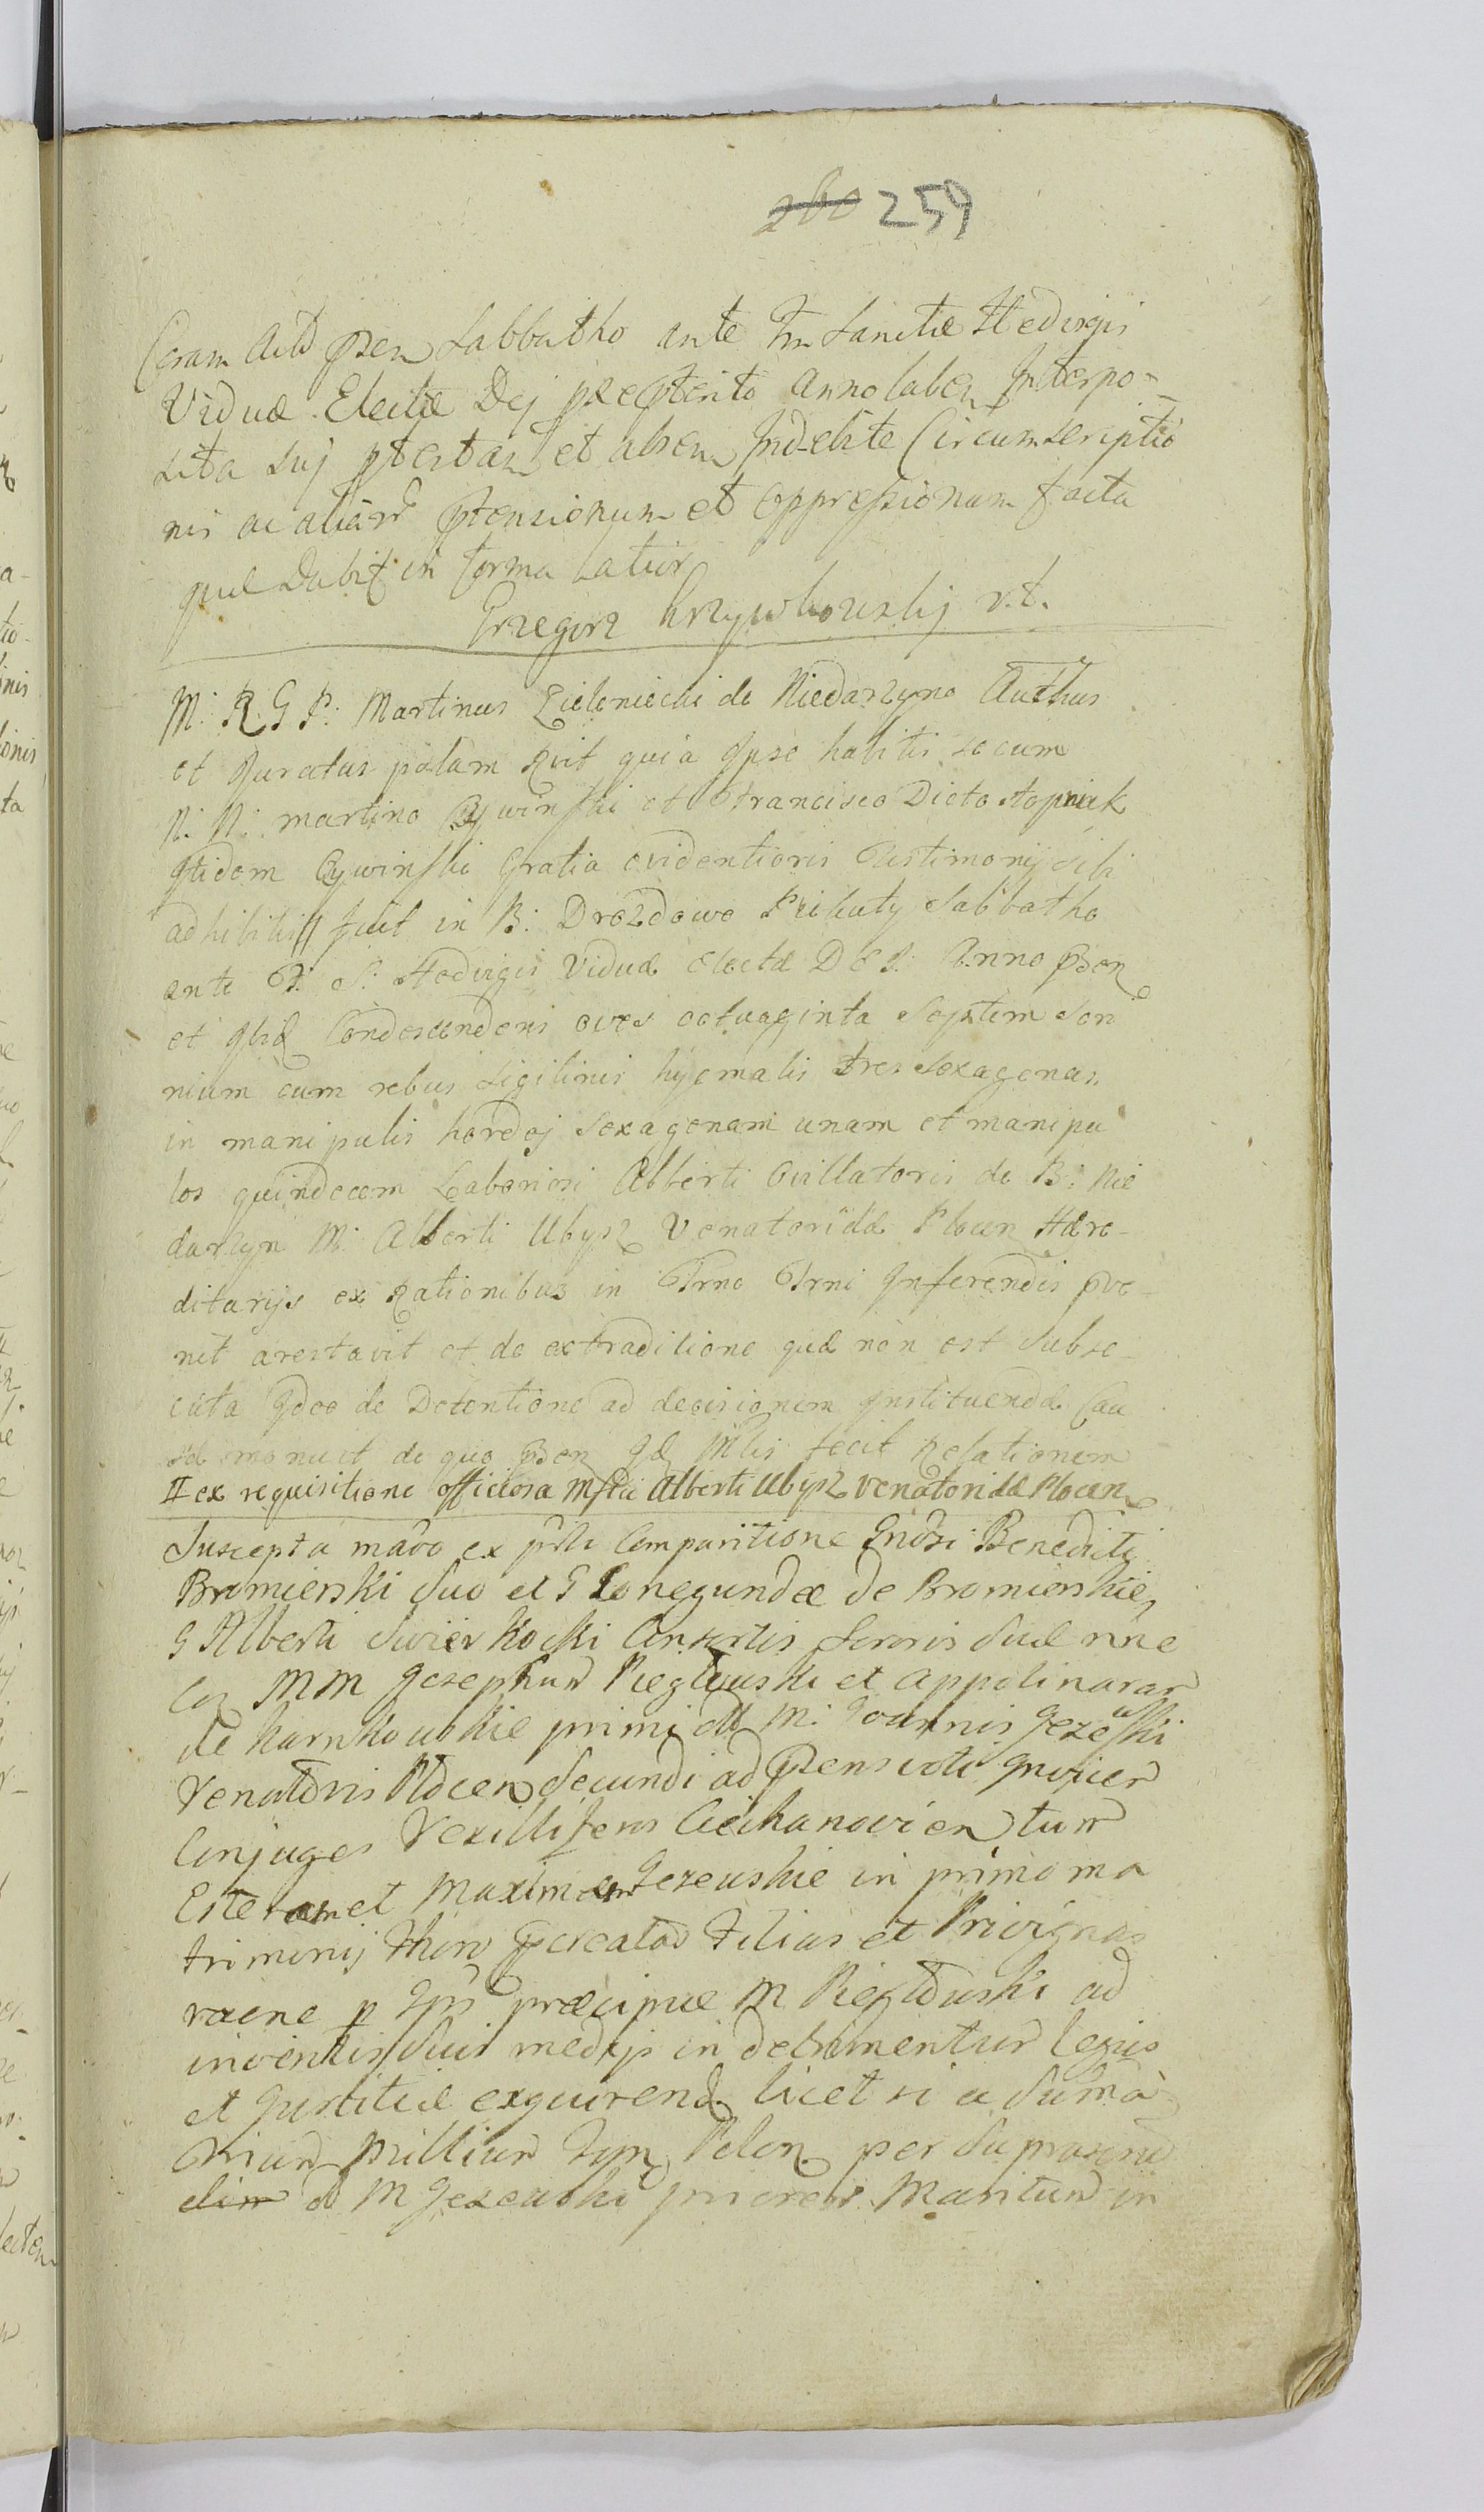 260 259
Coram Actis Prsen Sabbatho ante Fm Sanctæ Hedvigis
Viduæ Electæ Dej præterito anno laben Interpo-
sita suj ptestan et absen Indebite Circumscriptio
nis ac aliar ptensionum et oppressionum facta
quæ Dabit in forma latior
Grzegorz Krzywkowskij r.t.
M: R: G P: Martinus Zieleniecki de Niedarzyno Authus
et Juratus palam Rvit quia Ipse habitis secum
N: N: Martino Cywinski et Francisco Dicto Stopniak
Itidem Cywinski Gratia evidentioris Testimonij sibi
adhibitis fuit in B: Drozdowo Pributy Sabbatho
ante F: S: Hedvigis Viduæ Electæ D E J: Anno Psen
et ibid Condescendens oves octuaginta Septem Son
nium cum rebus Sigilinis hyemalis tres sexagenas
in manipulis hordej sexagenam unam et manipu
los quindecem Laboriosi Alberti Ovillatoris de B: Nie
darzyn M: Alberti Ubysz Venatoridæ Plocen Hære-
ditarijs ex Rationibus in Trno Trni Inferendis pve-
nit arestavit et de extraditione quæ non est Subse-
cuta Ideo de Detentione ad decisionem Instituendæ Cau
sæ monuit de quo Psen Id Mlis fecit Relationem
II ex requisitione officiosa Mfci Alberti Ubysz venatoridæ Plocen
Suscepta mavo ex psli Comparitione Gnosi Benedicti
Bromierski Suo et G Conegundæ de Bromierskie
G Alberti Swierkocki Consortis Sororis Suæ nne
Con MM Josephum Piegłowski et Appolinaram
de Karnkowskie primi olt M: Joannis Jezewski
Venatoris Plocen Secundi ad Psens voti quivier
Conjuges Vexilliferos Ciechanovien tum
Esteram et Maximam Jezewskie in primo ma
trimonij thoro pcreatas Filias et Privignas
raene p Ips præcipue M Piegłowski ad
inventis Suis medijs in detrimentum legis
et Justitiæ exquirend licet si a Suma
trium Millium Tym Polon per Supraspnu
olim M Jezewski priorem Maritum in